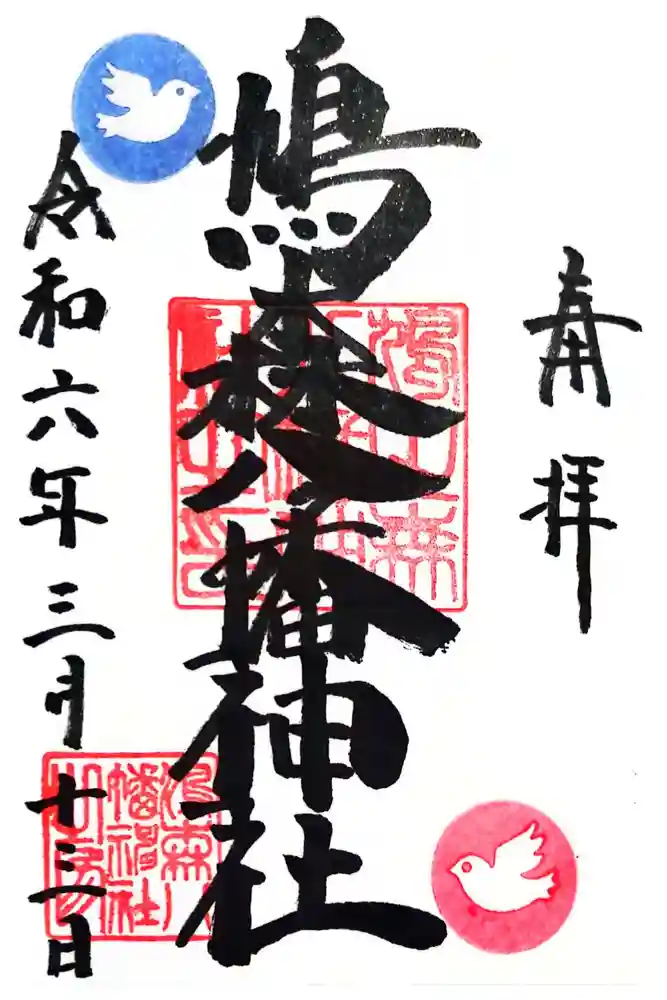 奉拝
鳩森八幡神社
令和六年三月十三日